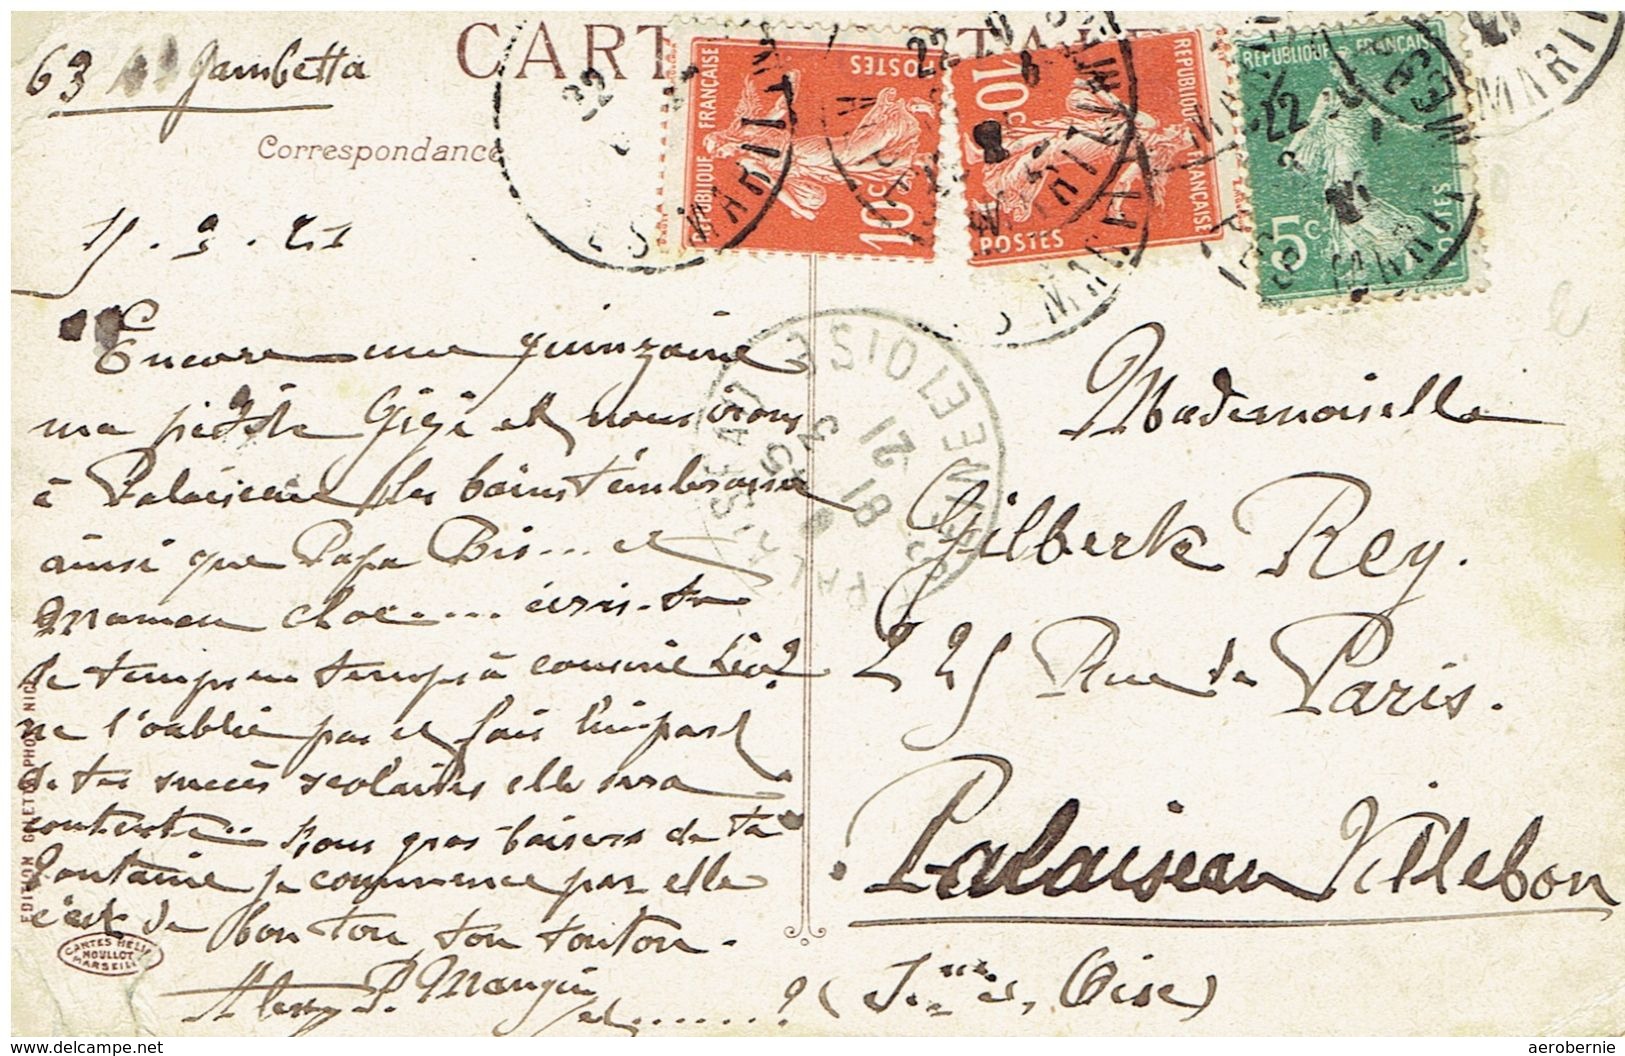 CARTE POSTALE
63 Gambetta
Correspondance
15.3.21
Encore une quinzaine
ma petite Gigi et nous irons
à Palaiseau les bains t'embrasser
ainsi que Papa Bis... et
Maman choc.... écris-tu
de temps en temps à cousine Léo?
ne l'oublie pas et fais lui part
de tes succès scolaires elle sera
contente.. Nous gros baisers de ta
Tontaine je commence par elle
c'est de bon ton, ton tonton.
P. Mangin
et.......?
Mademoiselle
Gilberte Rey.
225 Rue de
Paris.
Palaiseau Villebon
(Sne et Oise)
REPUBLIQUE FRANÇAISE
POSTES
10c
REPUBLIQUE FRANÇAISE
POSTES
10c
REPUBLIQUE FRANÇAISE
POSTES
5c
PALAISEAU
SEINE ET OISE
18
3
21
EDITION GILETTA PHOT NICE
CARTES HELIO
MOULLOT
MARSEILLE
www.delcampe.net
aerobernie